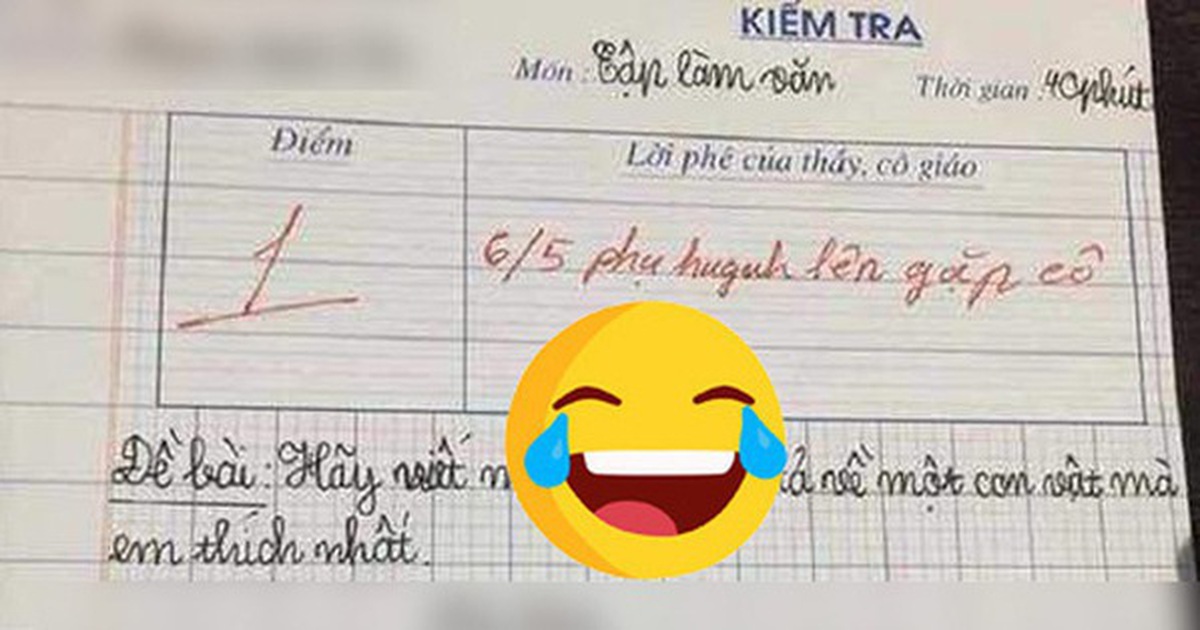 KIỂM TRA
Môn : Tập làm văn Thời gian : 40 phút
Điểm
Lời phê của thầy, cô giáo
1
6/5 phụ huynh lên gặp cô
Đề bài: Hãy viết về một con vật mà
em thích nhất.